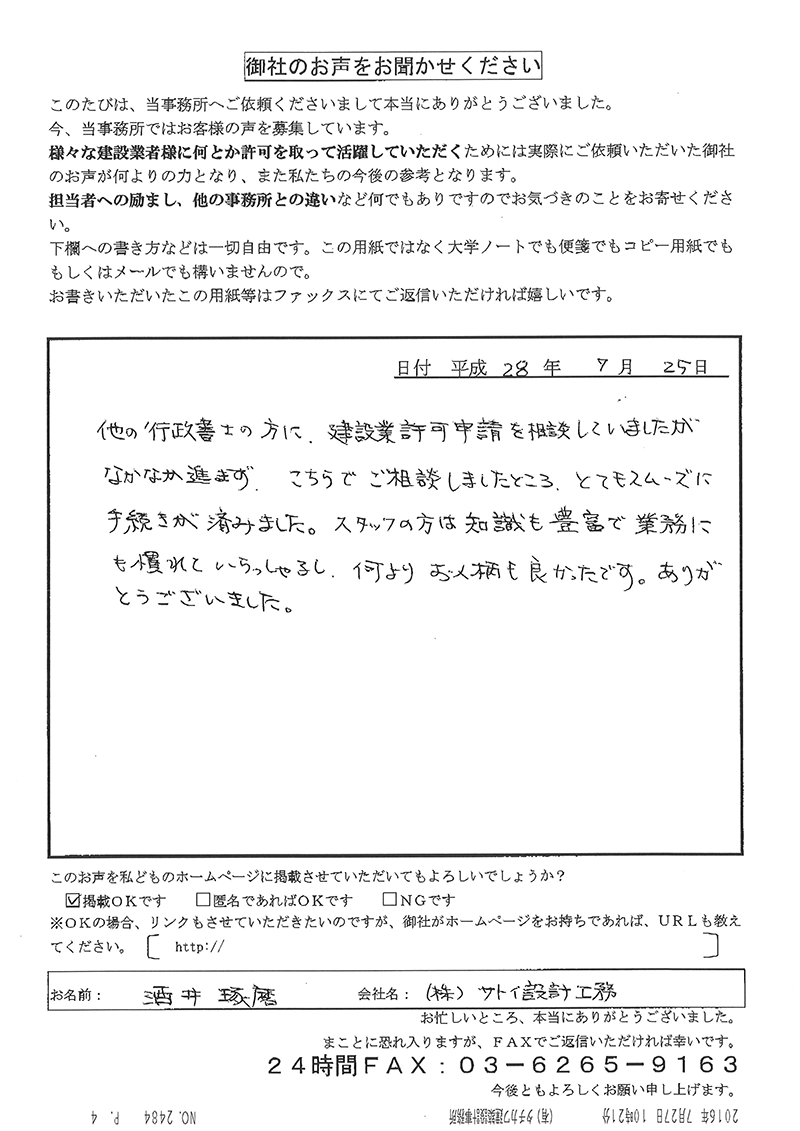 御社のお声をお聞かせください
このたびは、当事務所へご依頼くださいまして本当にありがとうございました。
今、当事務所ではお客様の声を募集しています。
様々な建設業者様に何とか許可を取って活躍していただくためには実際にご依頼いただいた御社
のお声が何よりの力となり、また私たちの今後の参考となります。
担当者への励まし、他の事務所との違いなど何でもありですのでお気づきのことをお寄せくださ
い。
下欄への書き方などは一切自由です。この用紙ではなく大学ノートでも便箋でもコピー用紙でも
もしくはメールでも構いませんので。
お書きいただいたこの用紙等はファックスにてご返信いただければ嬉しいです。
日付 平成 28 年 7 月 25日
他の行政書士の方に、建設業許可申請を相談していましたが
なかなか進まず、こちらでご相談しましたところ、とてもスムーズに
手続きが済みました。スタッフの方は知識も豊富で業務に
も慣れていらっしゃるし、何よりお人柄も良かったです。ありが
とうございました。
このお声を私どものホームページに掲載させていただいてもよろしいでしょうか？
☑掲載ＯＫです □匿名であればＯＫです □ＮＧです
※ＯＫの場合、リンクもさせていただきたいのですが、御社がホームページをお持ちであれば、ＵＲＬも教え
てください。〔 http:// 〕
お名前： 酒井 琢磨 会社名：(株) サトイ設計工務
お忙しいところ、本当にありがとうございました。
まことに恐れ入りますが、ＦＡＸでご返信いただければ幸いです。
２４時間ＦＡＸ：０３－６２６５－９１６３
今後ともよろしくお願い申し上げます。
2016年 7月27日 10時21分 (有)タチカワ建築設計事務所 NO. 2484 P. 4